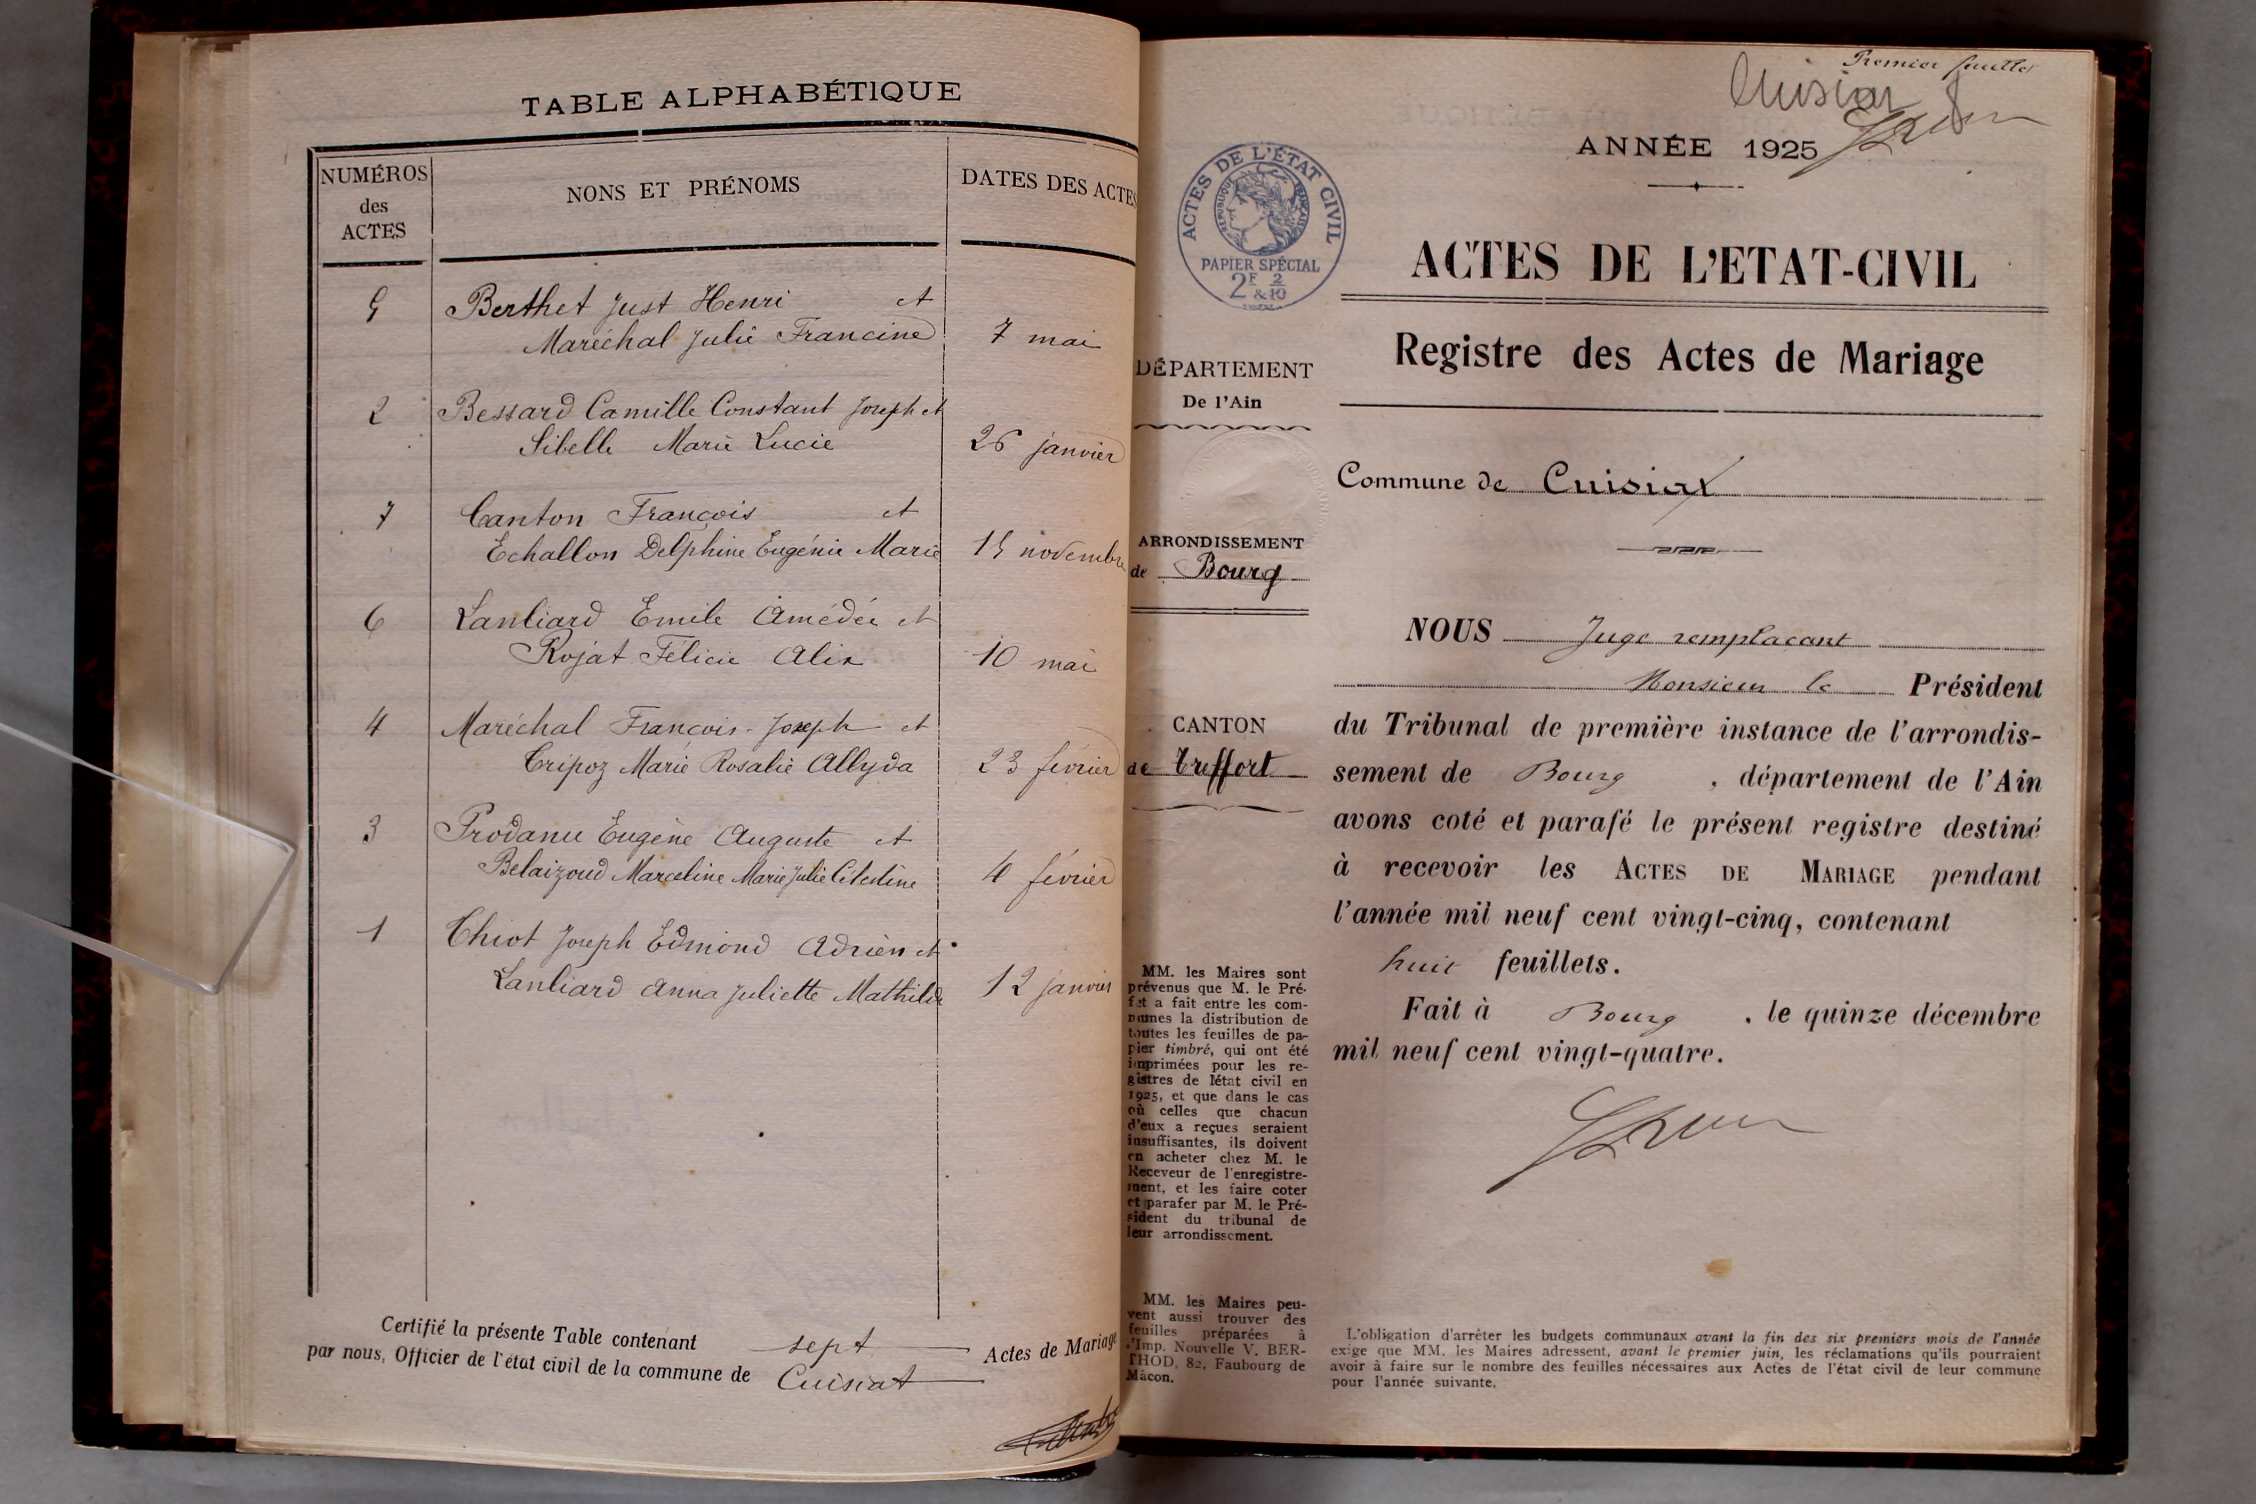 TABLE ALPHABÉTIQUE
NUMÉROS
des
ACTES
NONS ET PRÉNOMS
DATES DES ACTES
5 Berthet Just Henri et
Maréchal Julie Francine 7 mai
2 Bessard Camille Constant Joseph et
Sibelle Marie Lucie 26 janvier
7 Canton François et
Echallon Delphine Eugénie Marie 15 novembre
6 Lanliard Emile Amédée et
Rojat Félicie Alix 10 mai
4 Maréchal François-Joseph et
Tripoz Marie Rosalie Allyda 23 février
3 Prodanu Eugène Auguste et
Belaizoud Marceline Marie Julie Célestine 4 février
1 Thiot Joseph Edmond Adrien et
Lanliard Anna Juliette Mathilde 12 janvier
Certifié la présente Table contenant sept Actes de Mariage
par nous, Officier de l'état civil de la commune de Cuisiat
Premier feuillet
Cuisiat
ANNÉE 1925
ACTES DE L'ÉTAT CIVIL
RÉPUBLIQUE FRANÇAISE
PAPIER SPÉCIAL
2F & 2/10
ACTES DE L'ETAT-CIVIL
Registre des Actes de Mariage
DÉPARTEMENT
De l'Ain
Commune de Cuisiat
ARRONDISSEMENT
de Bourg
CANTON
de Treffort
NOUS Juge remplacant
Monsieur le Président
du Tribunal de première instance de l'arrondis-
sement de Bourg, département de l'Ain
avons coté et parafé le présent registre destiné
à recevoir les ACTES DE MARIAGE pendant
l'année mil neuf cent vingt-cinq, contenant
huit feuillets.
Fait à Bourg, le quinze décembre
mil neuf cent vingt-quatre.
MM. les Maires sont
prévenus que M. le Pré-
fet a fait entre les com-
munes la distribution de
toutes les feuilles de pa-
pier timbré, qui ont été
imprimées pour les re-
gistres de l'état civil en
1925, et que dans le cas
où celles que chacun
d'eux a reçues seraient
insuffisantes, ils doivent
en acheter chez M. le
Receveur de l'enregistre-
ment, et les faire coter
et parafer par M. le Pré-
sident du tribunal de
leur arrondissement.
MM. les Maires peu-
vent aussi trouver des
feuilles préparées à
l'Imp. Nouvelle V. BER-
THOD, 82, Faubourg de
Mâcon.
L'obligation d'arrêter les budgets communaux avant la fin des six premiers mois de l'année
exige que MM. les Maires adressent, avant le premier juin, les réclamations qu'ils pourraient
avoir à faire sur le nombre des feuilles nécessaires aux Actes de l'état civil de leur commune
pour l'année suivante.